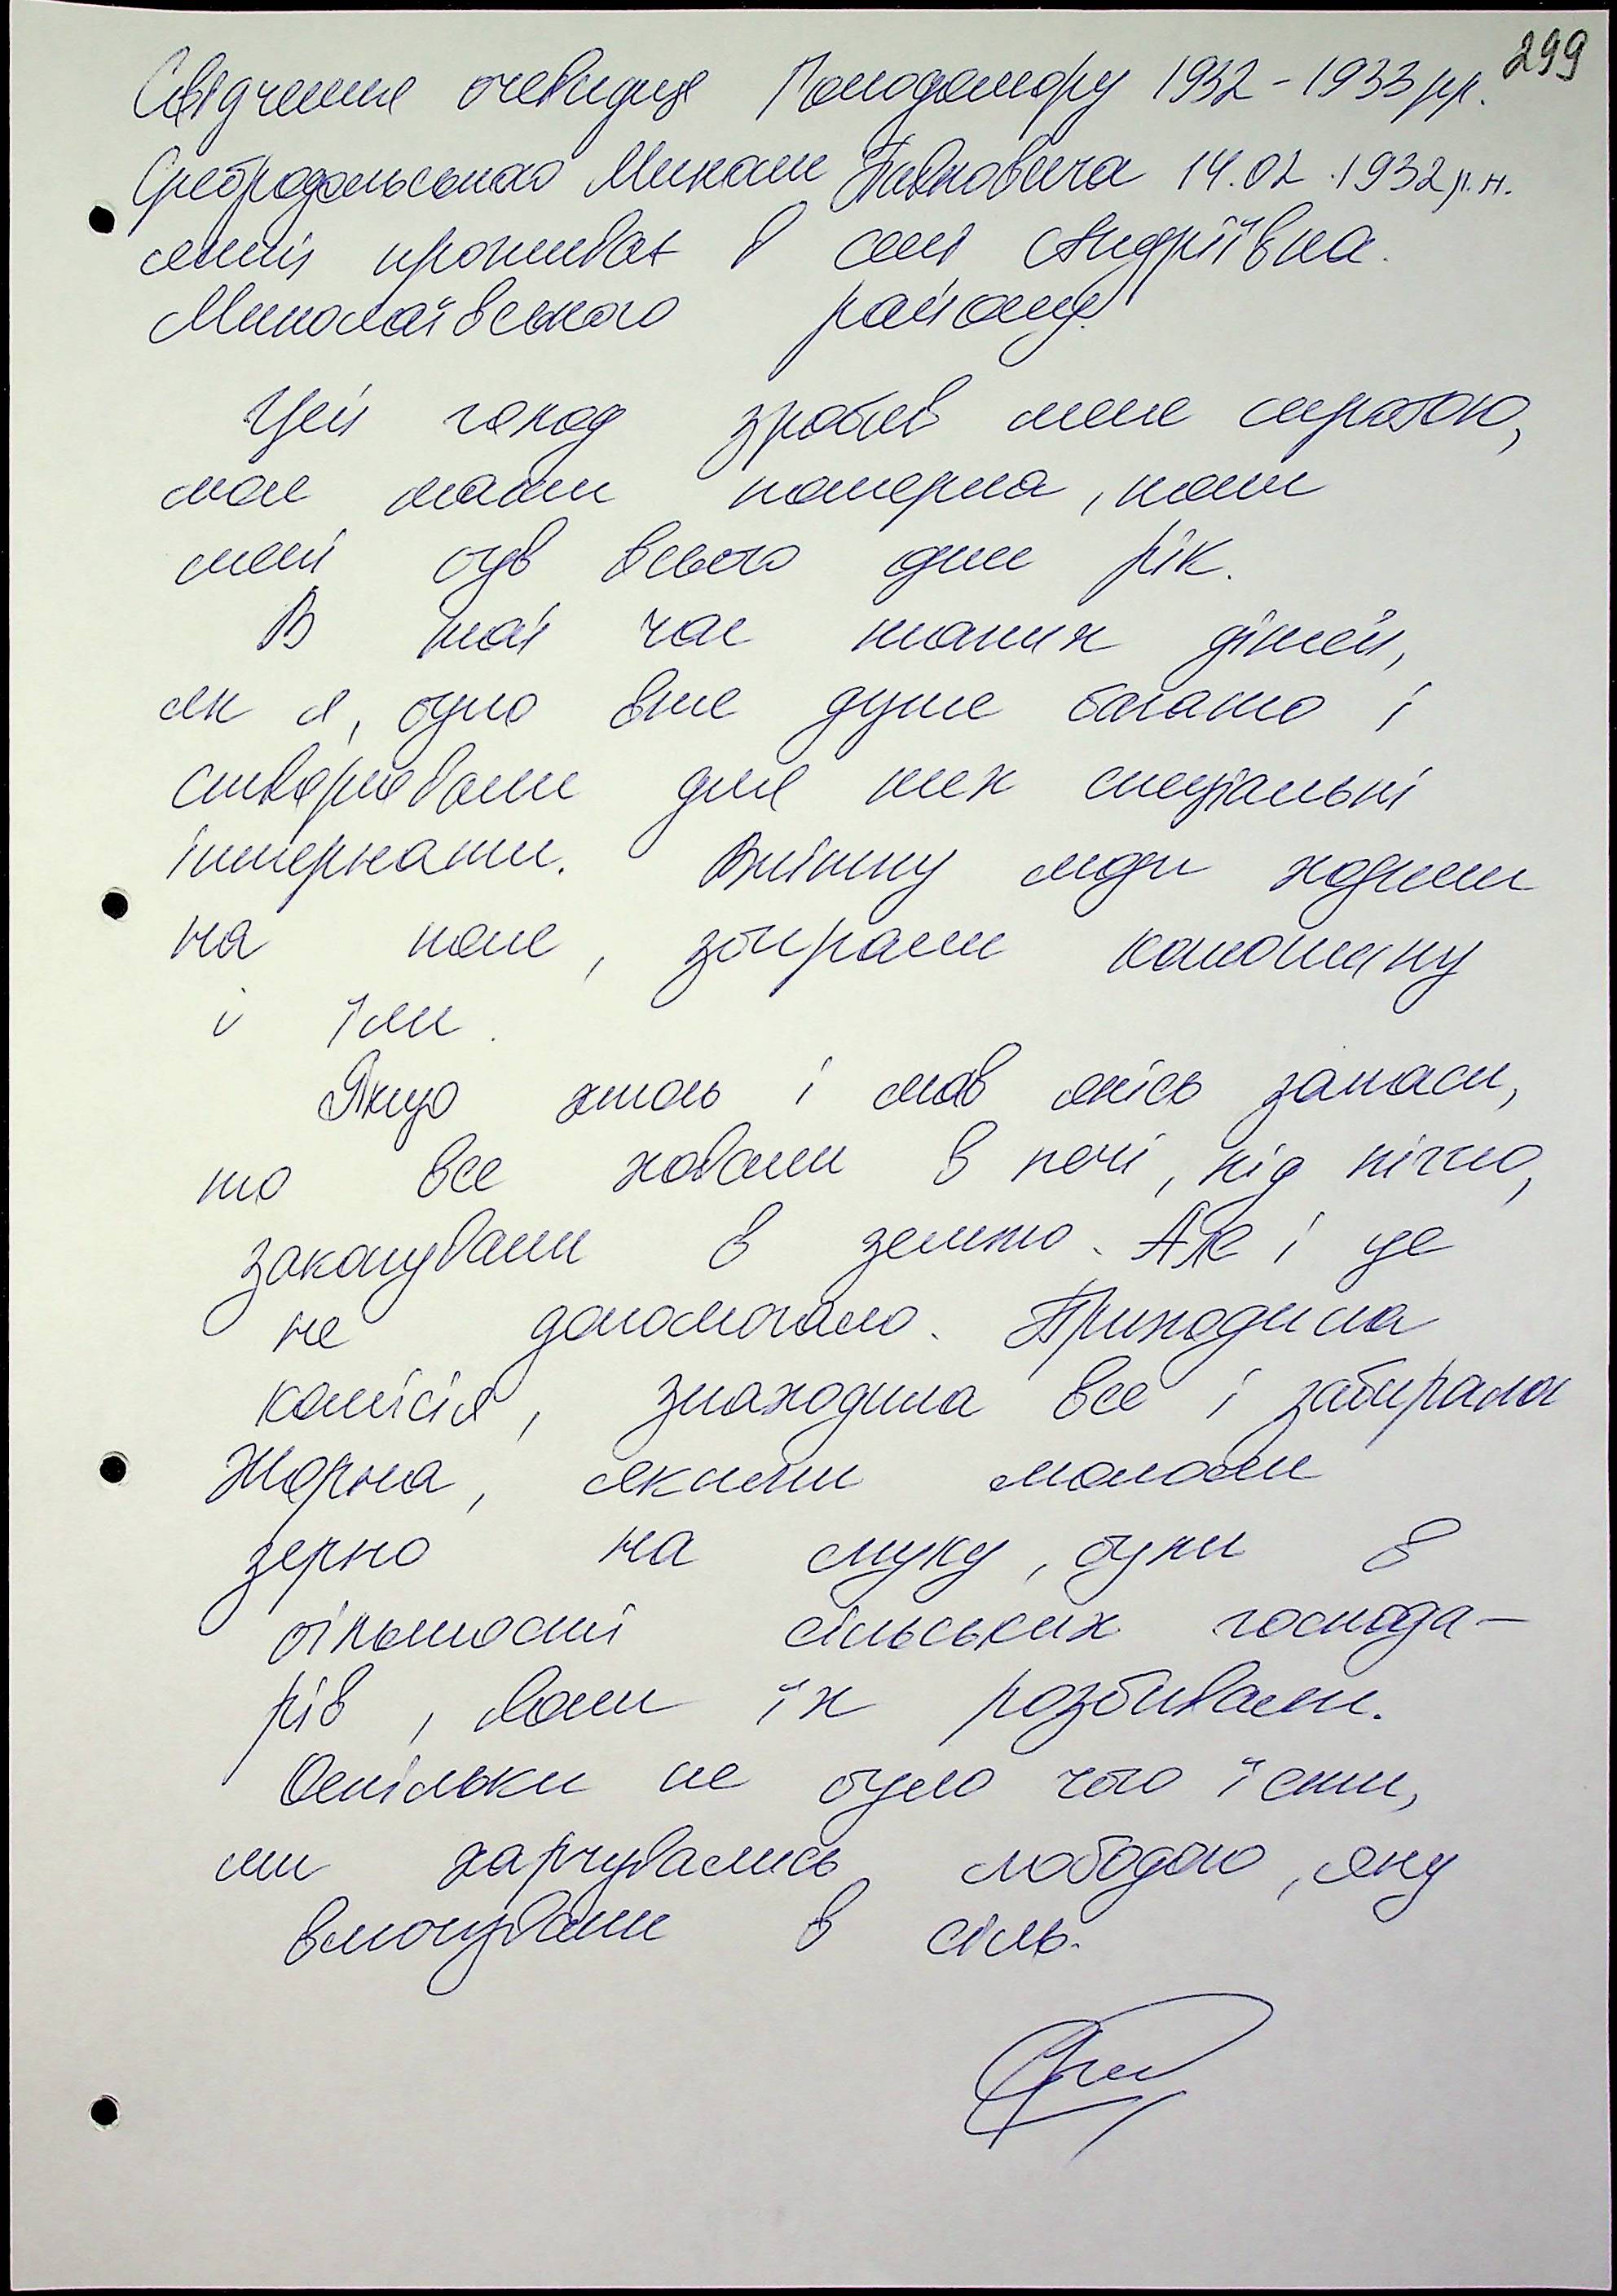 299
Свідчення очевидця Голодомору 1932-1933 рр.
Сребродольського Миколи Павловича 14.02.1932 р.н.
який проживає в селі Андріївка
Миколаївського району.
Цей голод зробив мене сиротою,
моя мати померла, коли
мені був всього один рік.
В той час таких дітей,
як я, було вже дуже багато і
створювали для них спеціальні
інтернати. Влітку люди ходили
на поле, збирали колошину
і їли.
Якщо хтось і мав якісь запаси,
то все ховали в печі, під піччю,
закопували в землю. Але і це
не допомогало. Приходила
комісія, знаходила все і забирала
Жорна, якими мололи
зерно на муку, були в
більшості сільських господа-
рів, вони їх розбивали.
Оскільки не було чого їсти,
ми харчувались лободою, яку
вмочували в сіль.